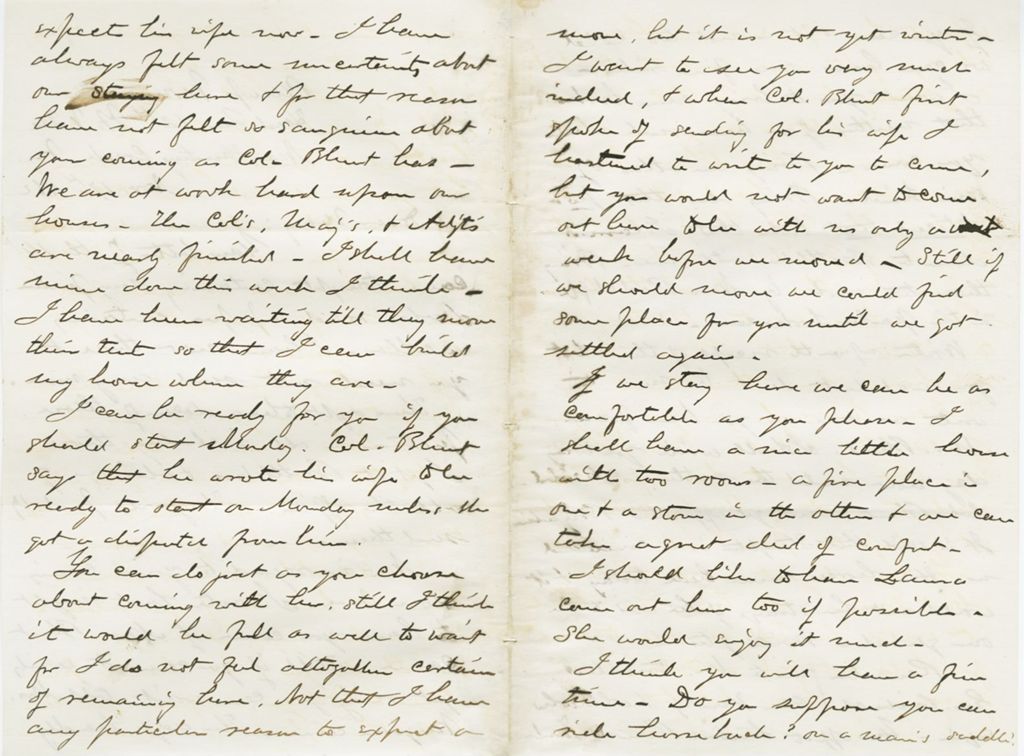 expect his wife now - I have
always felt some uncertainty about
our staying here & for that reason
have not felt so sanguine about
your coming as Col. Blunt has -
We are at work hard upon our
houses - The Col's, Maj's, & Adjt's
are nearly finished - I shall have
mine done this week I think -
I have been waiting till they move
their tent so that I can build
my house where they are -
I can be ready for you if you
should start Monday. Col. Blunt
says that he wrote his wife to be
ready to start on Monday unless she
got a dispatch from him.
You can do just as you choose
about coming with her, still I think
it would be full as well to wait
for I do not feel altogether certain
of remaining here. Not that I have
any particular reason to expect a
move, but it is not yet winter -
I want to see you very much
indeed, & when Col. Blunt first
spoke of sending for his wife I
hastened to write to you to come,
but you would not want to come
out here to be with us only a
week before we moved - Still if
we should move we could find
some place for you until we got
settled again -
If we stay here we can be as
comfortable as you please - I
shall have a nice little house
with two rooms - a fire place in
one & a stove in the other & we can
take a great deal of comfort -
I should like to have Laura
come out here too if possible -
She would enjoy it much -
I think you will have a fine
time - Do you suppose you can
ride horse back? on a man's saddle?